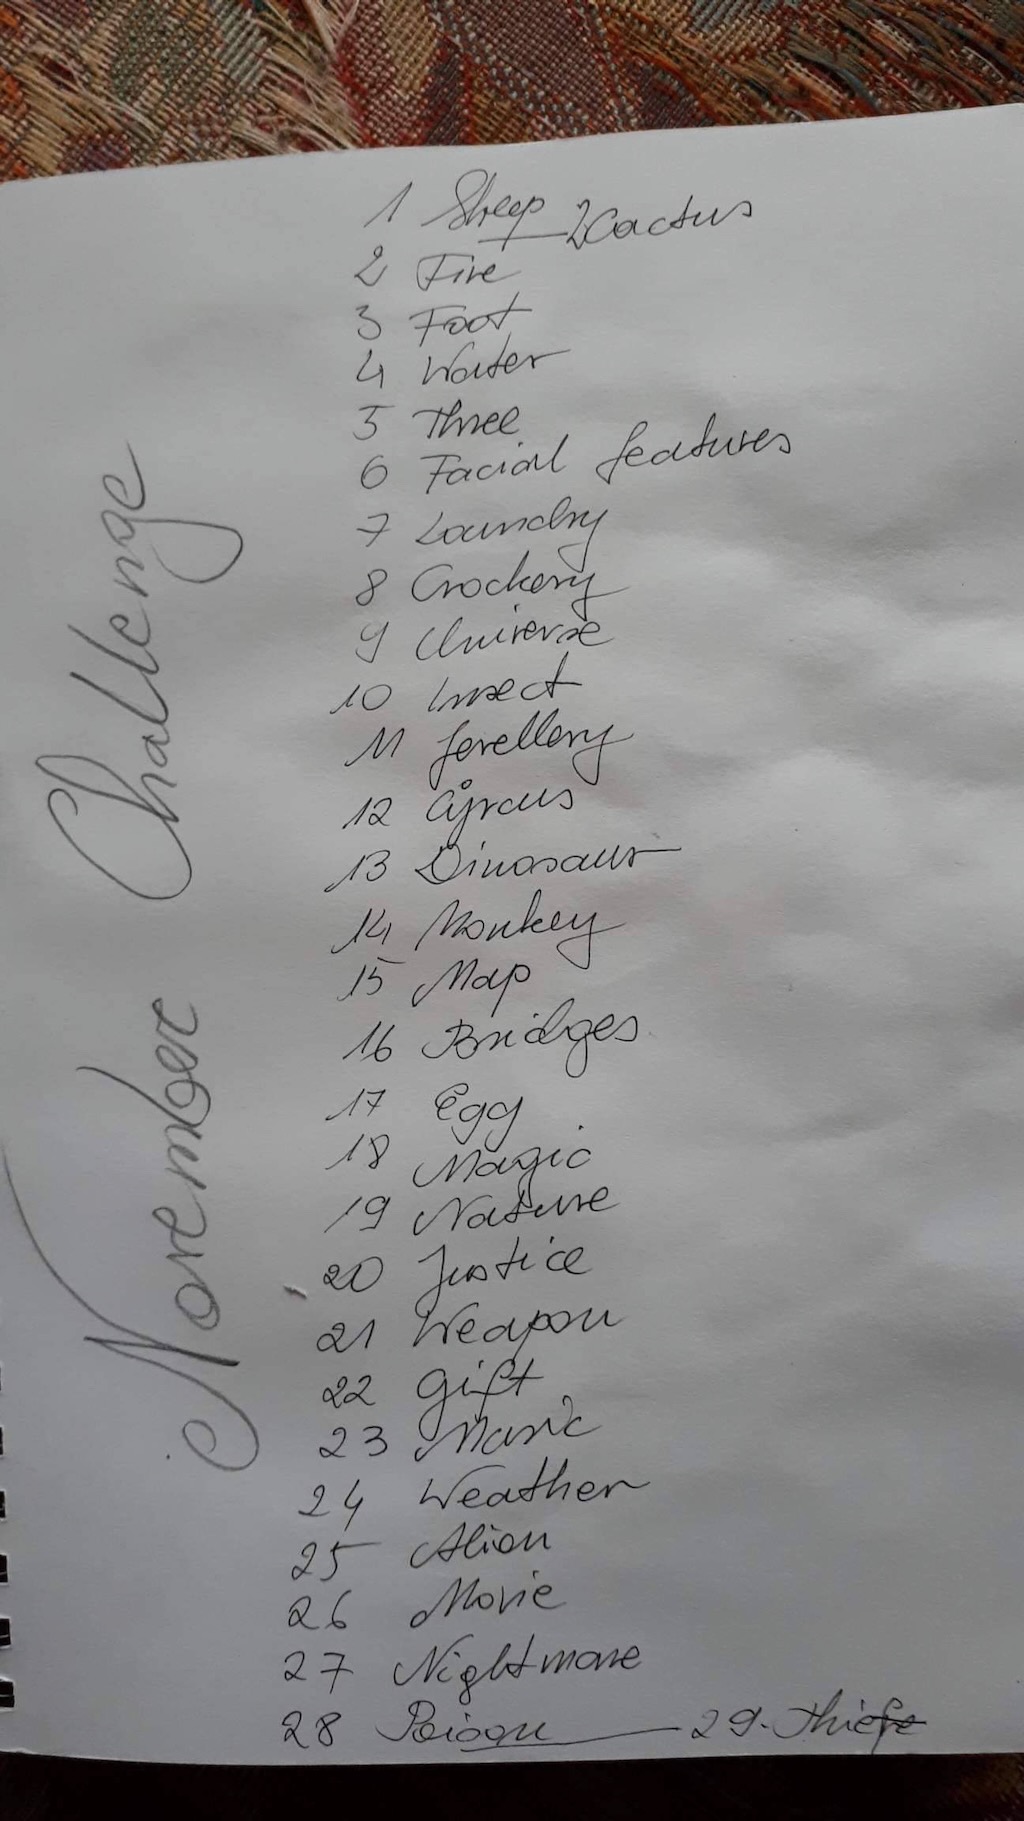 November Challenge
1 Sheep — 2 Cactus
2 Fire
3 Foot
4 Water
5 Three
6 Facial features
7 Laundry
8 Crockery
9 Universe
10 Insect
11 Jevellery
12 Cyrcus
13 Dinosaur
14 Monkey
15 Map
16 Bridges
17 Egg
18 Magic
19 Nature
20 Justice
21 Weapon
22 Gift
23 Music
24 Weather
25 Alien
26 Movie
27 Nightmare
28 Poison — 29. Thiefe